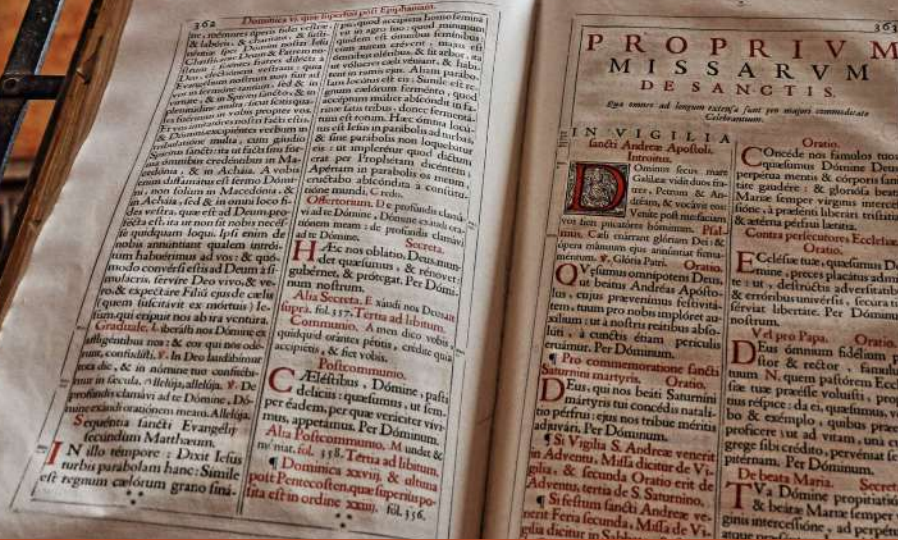 362
Dominica vj. quæ superfuit post Epiphaniam.
tione, mémores óperis fidei vestræ,
& labóris, & charitátis, & susti-
néntiæ spei Dómini nostri Jesu
Christi, ante Deum & Patrem no-
strum : sciéntes fratres dilécti à
Deo, electiónem vestram : quia
Evangélium nostrum non fuit ad
vos in sermóne tantùm, sed & in
virtúte, & in Spíritu sancto, & in
plenitúdine multa : sicut scitis qua-
les fuérimus in vobis propter vos.
Et vos imitatóres nostri facti estis,
& Dómini, excipiéntes verbum in
tribulatióne multa, cum gáudio
Spíritus sancti : ita ut facti sitis for-
ma ómnibus credéntibus in Ma-
cedónia, & in Acháia. A vobis
enim diffamátus est sermo Dómi-
ni, non solùm in Macedónia, &
in Acháia, sed & in omni loco fi-
des vestra, quæ est ad Deum pro-
fécta est, ita ut non sit nobis necés-
se quidquam loqui. Ipsi enim de
nobis annúntiant qualem introí-
tum habuérimus ad vos : & quó-
modo convérsi estis ad Deum à si-
mulácris, servíre Deo vivo, & ve-
ro, & expectáre Fíliũ ejus de cælis
(quem suscitávit ex mórtuis) Je-
sum, qui erípuit nos ab ira ventúra.
Graduale. Liberásti nos Dómine ex
affligéntibus nos : & eos qui nos odé-
runt, confudísti. ℣. In Deo laudábimur
tota die, & in nómine tuo confité-
bimur in sæcula. Allelúja, allelúja. ℣. De
profúndis clamávi ad te Dómine, Dó-
mine exáudi oratiónem meam. Allelúja.
Sequentia sancti Evangelij
secundum Matthæum.
IN illo témpore : Dixit Jesus
turbis parábolam hanc: Simile
est regnum cælórum grano siná-
pis, quod accípiens homo seminá-
vit in agro suo : quod mínimum
quidem est ómnibus semínibus,
cùm autem créverit, majus est
ómnibus oléribus, & fit arbor, ita
ut vólucres cæli véniant, & hábi-
tent in ramis ejus. Aliam parábo-
lam locútus est eis : Símile est re-
gnum cælórum ferménto, quod
accéptum múlier abscóndit in fa-
rínæ satis tribus, donec fermentá-
tum est totum. Hæc ómnia locú-
tus est Jesus in parábolis ad turbas,
& sine parábolis non loquebátur
eis : ut impléretur quod dictum
erat per Prophétam dicéntem :
Apériam in parábolis os meum,
eructábo abscóndita à constitu-
tióne mundi. Credo.
Offertorium. De profúndis clamá-
vi ad te Dómine, Dómine exáudi ora-
tiónem meam : de profúndis clamávi
ad te Dómine.
Secreta.
HÆc nos oblátio, Deus, mun-
det quæsumus, & rénovet :
gubérnet, & prótegat. Per Dómi-
num nostrum.
Alia Secreta. Exáudi nos Deus, ut
supra. fol. 357. Tertia ad libitum.
Communio. Amen dico vobis,
quidquid orántes pétitis, crédite quia
accipiétis, & fiet vobis.
Postcommunio.
CÆléstibus, Dómine, pasti
delíciis : quæsumus, ut sem-
per éadem, per quæ veráciter vívi-
mus, appetámus. Per Dóminum.
Alia Postcommunio. Mundet &
múniat. fol. 358. Tertia ad libitum.
¶ Dominica xxviij, & ultima
post Pentecosten, quæ superius po-
sita est in ordine xxiiij. fol. 356.
363
PROPRIVM
MISSARVM
DE SANCTIS.
Quæ omnes ad longum extensæ sunt pro majori commoditate
Celebrantium.
IN VIGILIA
sancti Andreæ Apostoli.
Introitus.
DOminus secus mare
Galilææ vidit duos fra-
tres, Petrum & An-
dréam, & vocávit eos:
Veníte post me, fáciam
vos fíeri piscatóres hóminum. Psal-
mus. Cæli enárrant glóriam Dei : &
ópera mánuum ejus annúntiat firma-
méntum. ℣. Glória Patri. Oratio.
QVæsumus omnípotens Deus,
ut beátus Andréas Apósto-
lus, cujus prævenímus festivitá-
tem, tuum pro nobis implóret au-
xílium : ut à nostris reátibus abso-
lúti, à cunctis étiam perículis
eruámur. Per Dóminum.
¶ Pro commemoratione sancti
Saturnini martyris. Oratio.
DEus, qui nos beáti Saturníni
mártyris tui concédis natalí-
tio pérfrui : ejus nos tríbue méritis
adjuvári. Per Dóminum.
¶ Si Vigilia S. Andreæ venerit
in Adventu, Missa dicitur de Vi-
gilia, & secunda Oratio erit de
Adventu, tertia de S. Saturnino.
¶ Si festum sancti Andreæ ve-
nerit Feria secunda, Missa de Vi-
gilia dicitur in Sabbato
Oratio.
COncéde nos fámulos tuos
quæsumus Dómine Deus
perpétua mentis & córporis sani-
táte gaudére : & gloriósa beátæ
Maríæ semper vírginis intercessi-
óne, à præsénti liberári tristítia
& ætérna pérfrui lætítia.
Contra persecutores Ecclesiæ
Oratio.
ECclésiæ tuæ, quæsumus Dó-
mine, preces placátus admít-
te : ut, destrúctis adversitátibus
& erróribus univérsis, secúra tibi
sérviat libertáte. Per Dóminum
nostrum.
Vel pro Papa. Oratio.
DEus ómnium fidélium pa-
stor & rector, fámulum
tuum N. quem pastórem Ecclé-
siæ tuæ præésse voluísti, propí-
tius réspice : da ei, quæsumus, ver-
bo & exémplo, quibus præest
profícere : ut ad vitam, unà cum
grege sibi crédito, pervéniat sem-
pitérnam. Per Dóminum.
De beata Maria. Secreta
TVa Dómine propitiatióne
& beátæ Maríæ semper vir-
ginis intercessióne, ad perpétuam